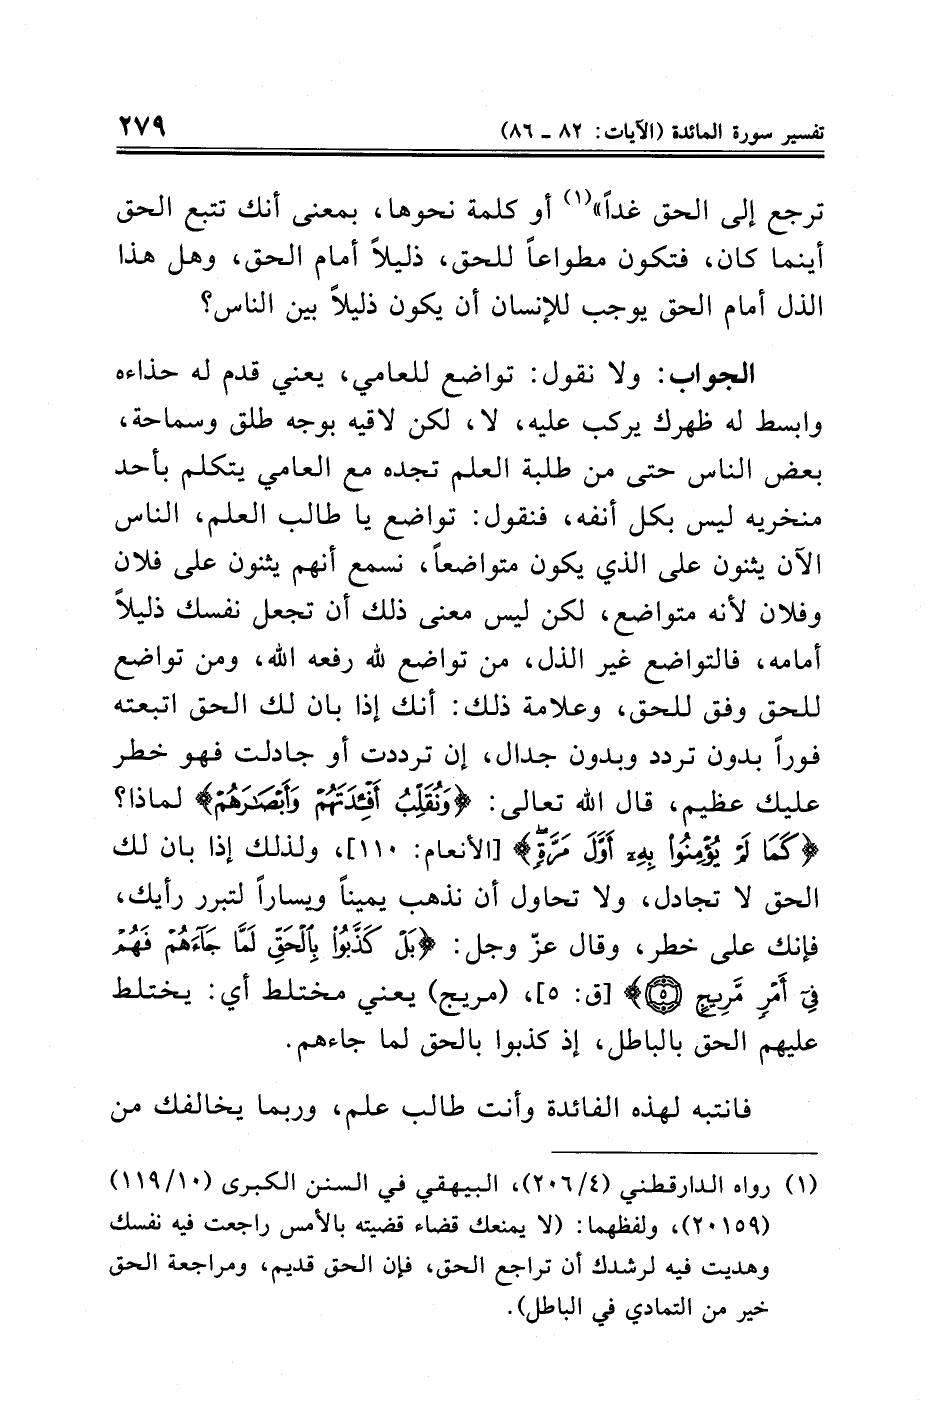 تفسير سورة المائدة (الآيات: ٨٢ ـ ٨٦) ٢٧٩
ترجع إلى الحق غداً»(١) أو كلمة نحوها، بمعنى أنك تتبع الحق
أينما كان، فتكون مطواعاً للحق، ذليلاً أمام الحق، وهل هذا
الذل أمام الحق يوجب للإنسان أن يكون ذليلاً بين الناس؟
الجواب: ولا نقول: تواضع للعامي، يعني قدم له حذاءه
وابسط له ظهرك يركب عليه، لا، لكن لاقيه بوجه طلق وسماحة،
بعض الناس حتى من طلبة العلم تجده مع العامي يتكلم بأحد
منخريه ليس بكل أنفه، فنقول: تواضع يا طالب العلم، الناس
الآن يثنون على الذي يكون متواضعاً، نسمع أنهم يثنون على فلان
وفلان لأنه متواضع، لكن ليس معنى ذلك أن تجعل نفسك ذليلاً
أمامه، فالتواضع غير الذل، من تواضع لله رفعه الله، ومن تواضع
للحق وفق للحق، وعلامة ذلك: أنك إذا بان لك الحق اتبعته
فوراً بدون تردد وبدون جدال، إن ترددت أو جادلت فهو خطر
عليك عظيم، قال الله تعالى: ﴿وَنُقَلِّبُ أَفْـِٔدَتَهُمْ وَأَبْصَـٰرَهُمْ﴾ لماذا؟
﴿كَمَا لَمْ يُؤْمِنُوا۟ بِهِۦٓ أَوَّلَ مَرَّةٍۢ﴾ [الأنعام: ١١٠]، ولذلك إذا بان لك
الحق لا تجادل، ولا تحاول أن نذهب يميناً ويساراً لتبرر رأيك،
فإنك على خطر، وقال عزّ وجل: ﴿بَلْ كَذَّبُوا۟ بِٱلْحَقِّ لَمَّا جَآءَهُمْ فَهُمْ
فِىٓ أَمْرٍۢ مَّرِيجٍ ٥﴾ [ق: ٥]، (مريج) يعني مختلط أي: يختلط
عليهم الحق بالباطل، إذ كذبوا بالحق لما جاءهم.
فانتبه لهذه الفائدة وأنت طالب علم، وربما يخالفك من
(١) رواه الدارقطني (٢٠٦/٤)، البيهقي في السنن الكبرى (١١٩/١٠)
(٢٠١٥٩)، ولفظهما: (لا يمنعك قضاء قضيته بالأمس راجعت فيه نفسك
وهديت فيه لرشدك أن تراجع الحق، فإن الحق قديم، ومراجعة الحق
خير من التمادي في الباطل).